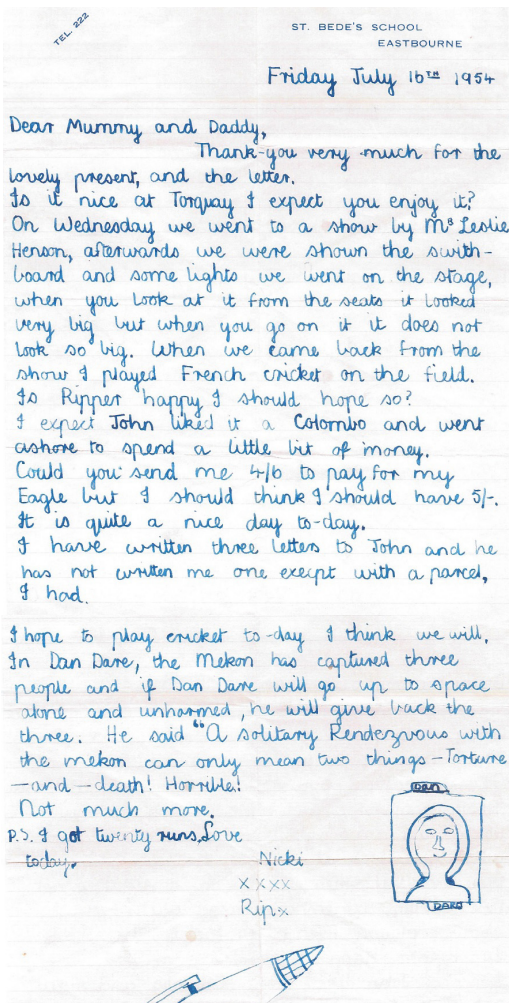 TEL. 222
ST. BEDE'S SCHOOL
EASTBOURNE
Friday July 16TH 1954
Dear Mummy and Daddy,
Thank-you very much for the
lovely present, and the letter.
Is it nice at Torquay I expect you enjoy it?
On Wednesday we went to a show by Mrs Leslie
Henson, afterwards we were shown the swith-
board and some lights we went on the stage,
when you look at it from the seats it looked
very big but when you go on it it does not
look so big. When we came back from the
show I played French cricket on the field.
Is Ripper happy I should hope so?
I expect John liked it a Colombo and went
ashore to spend a little bit of money.
Could you send me 4/6 to pay for my
Eagle but I should think I should have 5/-.
It is quite a nice day to-day.
I have written three letters to John and he
has not written me one execpt with a parcel,
I had.
I hope to play cricket to-day I think we will,
In Dan Dare, the Mekon has captured three
people and if Dan Dare will go up to space
alone and unharmed, he will give back the
three. He said "A solitary Rendezvous with
the mekon can only mean two things - Torture
-and-death! Horrible!
Not much more.
P.S. I got twenty runs, Love
today.
Nicki
xxxx
Rip x
DAN
DARE